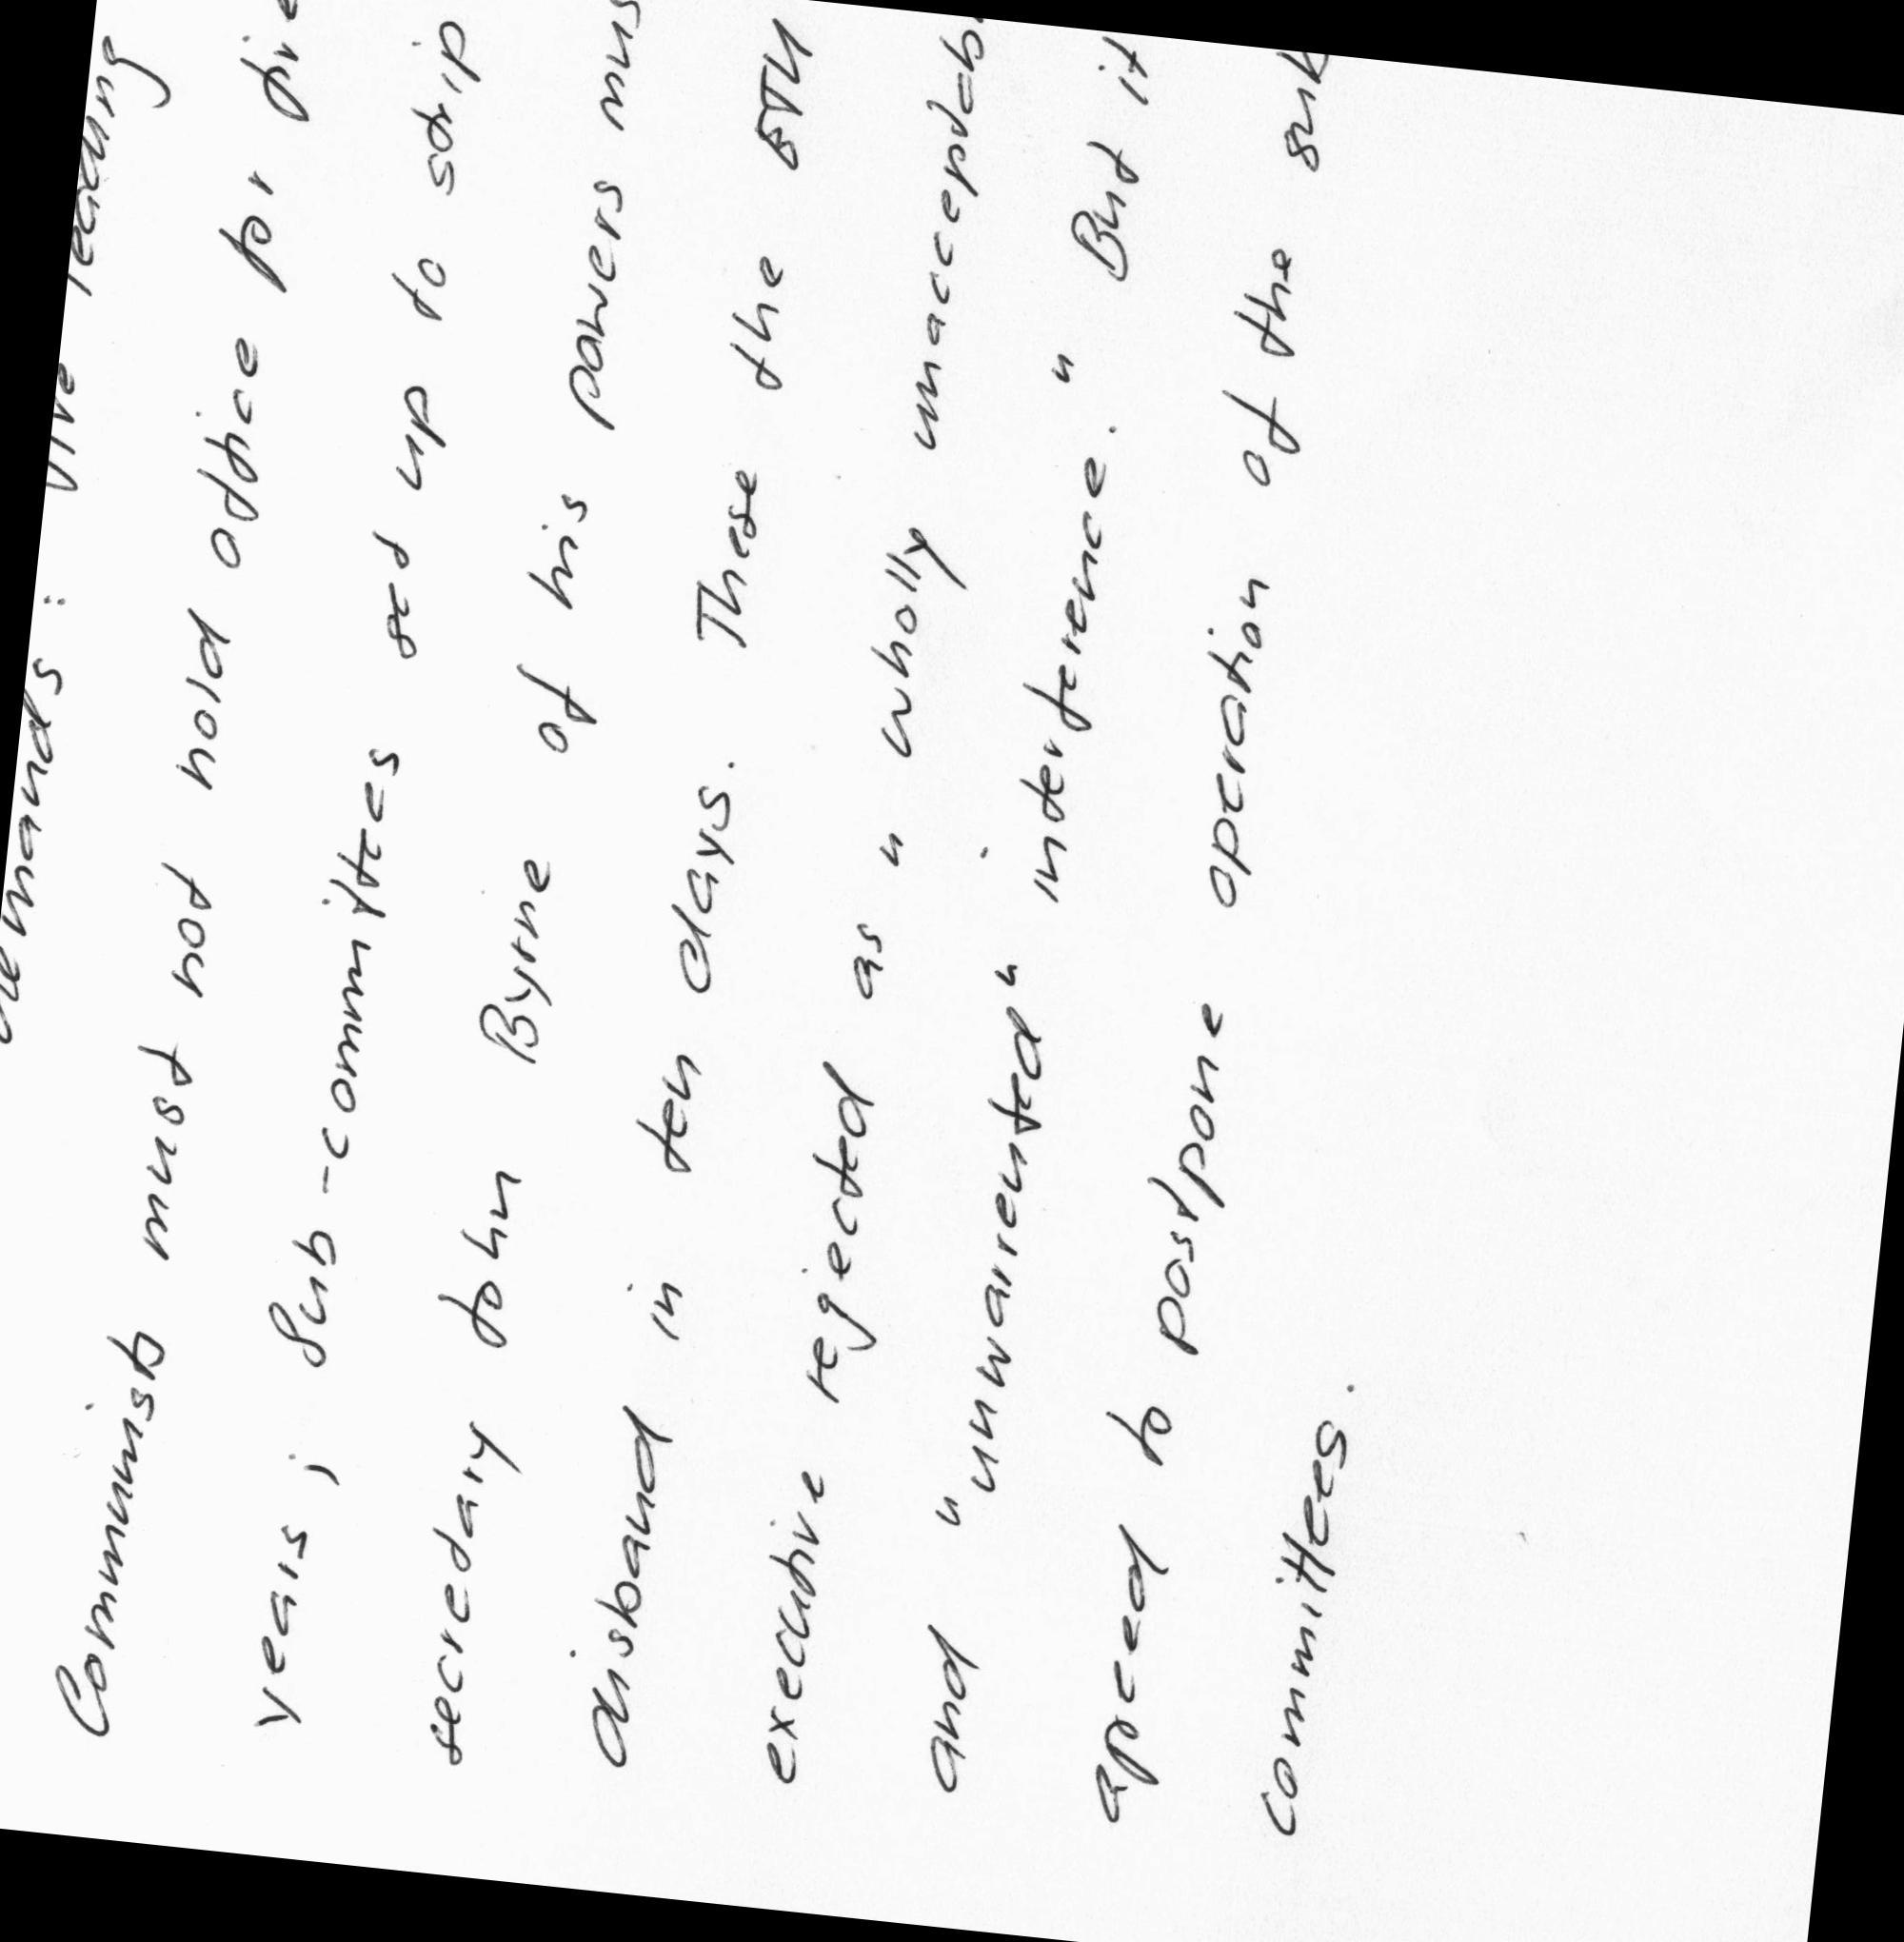 demands: Five leading
Communists must not hold office for five
years; Sub-committees set up to strip
secretary John Byrne of his powers mus
disband in ten days. These the ETU
executive rejected as "wholly unacceptab
and "unwarrented" interference." But it
agreed to postpone operation of the sub
committees.